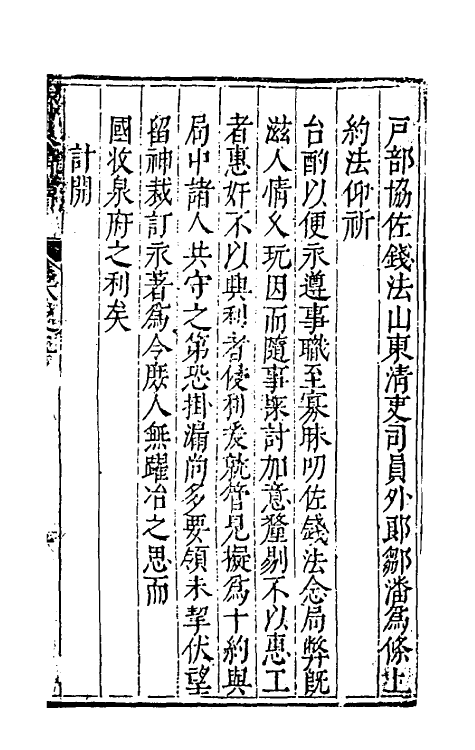 戶部協佐錢法山東清吏司員外郎鄒潘為條上
約法仰祈
台酌以便永遵事職至寡昧叨佐錢法念局弊既
滋人情久玩因而隨事採討加意釐剔不以惠工
者惠奸不以興利者侵利爰就管見擬為十約與
局中諸人共守之第恐掛漏尚多要領未挈伏望
留神裁訂永著為令庶人無躍冶之思而
國收泉府之利矣
計開